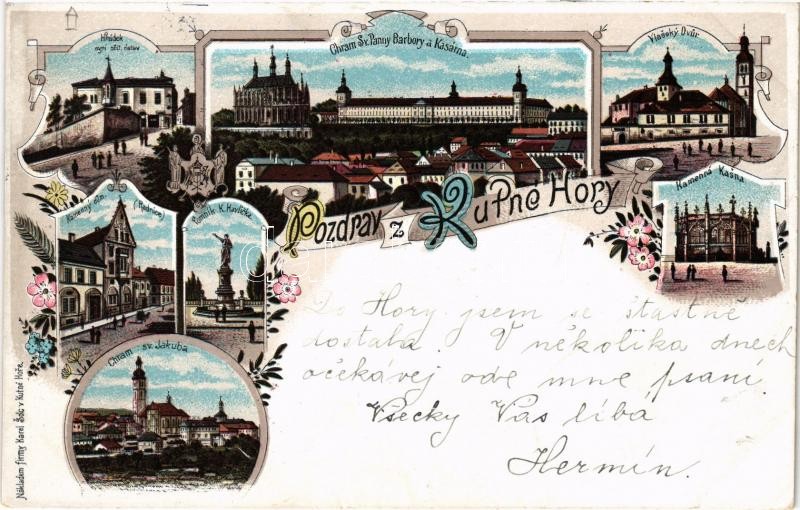 Hrádek
nyní obč. ústav
Chram Sv. Panny Barbory a Kasárna.
Vlašský Dvůr.
Kamenný dům. (Radnice)
Pomník K. Havlíčka.
Kamenná Kašna
Pozdrav z Kutné Hory
Chram sv. Jakuba
Do Hory jsem se šťastně
dostala. V několika dnech
očekávej ode mne psaní.
Všecky Vás líbá
Hermín.
Nákladem firmy Karel Šolc v Kutné Hoře.